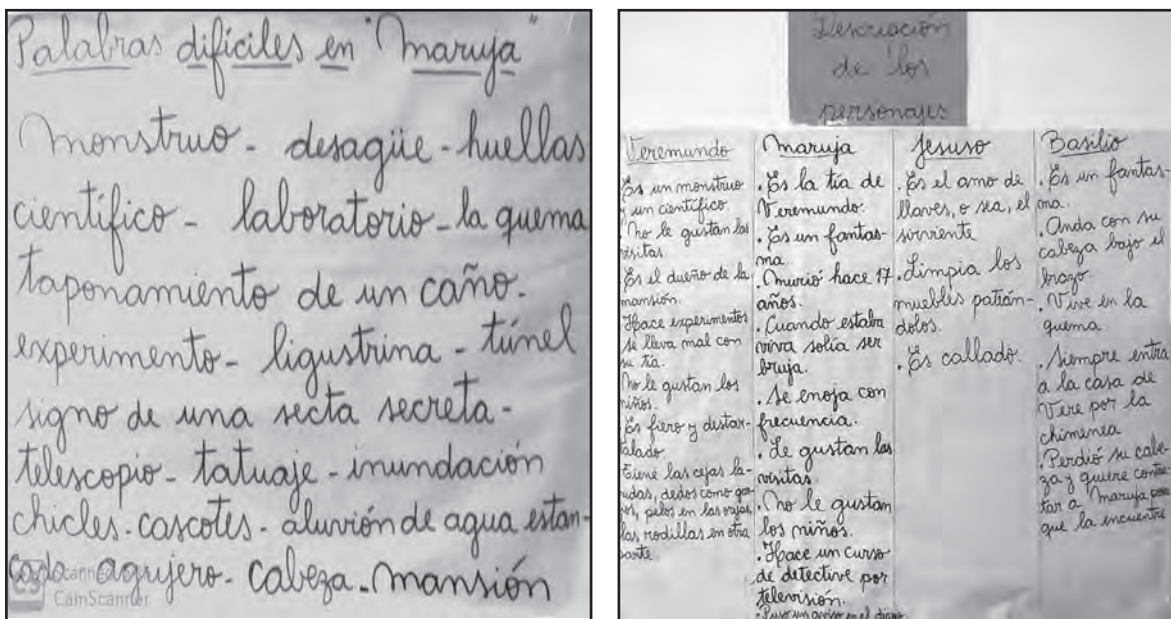 Palabras difíciles en "Maruja"
Monstruo - desagüe - huellas
científico - laboratorio - la quema
taponamiento de un caño.
experimento - ligustrina - túnel
signo de una secta secreta -
telescopio - tatuaje - inundación
chicles - cascotes - aluvión de agua estan-
cada agujero - cabeza - mansión
CamScanner
Descripción
de los
personajes
Veremundo
Es un monstruo
y un científico
No le gustan las
visitas
Es el dueño de la
mansión.
Hace experimentos
se lleva mal con
su tía.
No le gustan los
niños.
Es fiero y destar-
talado.
Tiene las cejas
dedos como
pelos en las orejas,
las rodillas en otra
parte.
Maruja
. Es la tía de
Veremundo.
. Es un fantas-
ma.
. Murió hace 17
años.
. Cuando estaba
viva solía ser
bruja.
. Se enoja con
frecuencia.
. Le gustan las
visitas.
. No le gustan
los niños.
. Hace un curso
de detective por
televisión.
. Puso un aviso en el diario
Jesuso
. Es el amo de
llaves, o sea, el
sirviente
. Limpia los
muebles patián-
dolos.
. Es callado.
Basilio
. Es un fantas-
ma.
. Anda con su
cabeza bajo el
brazo.
. Vive en la
quema.
. Siempre entra
a la casa de
Vere por la
chimenea
. Perdió su cabe-
za y quiere contra-
tar a Maruja para
que la encuentre